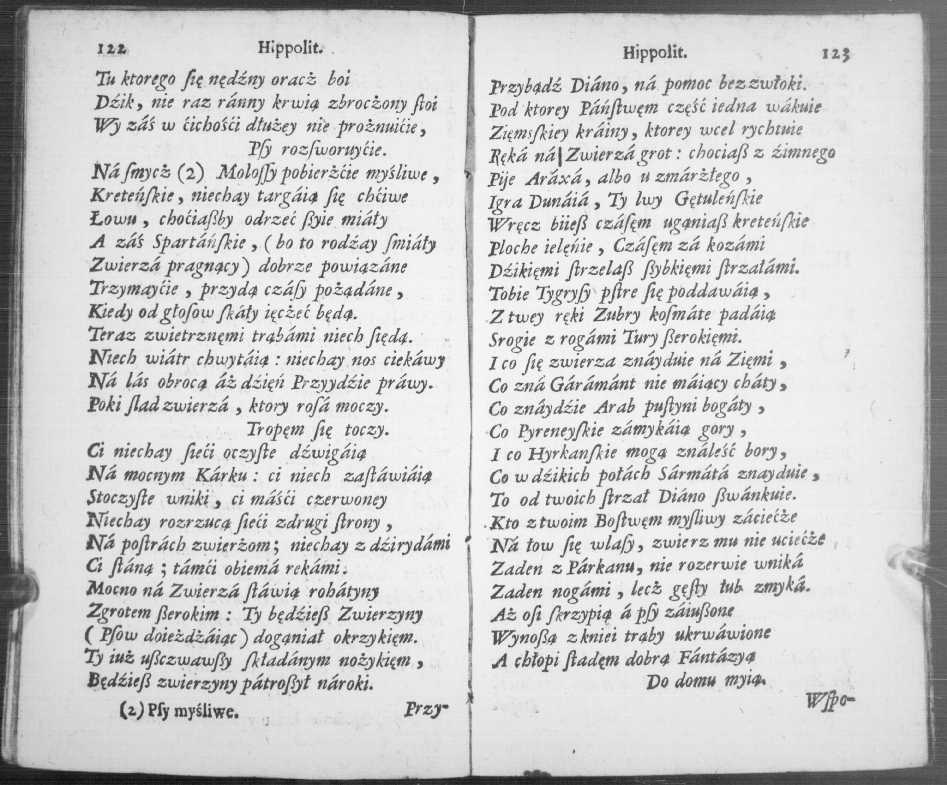 122 Hippolit.
Tu ktorego ſię nędźny oracż boi
Dźik, nie raz ránny krwią zbrocżony ſtoi
Wy záś w ćichośći dłużey nie prożnuićie,
Pſy rozſworuyćie.
Ná ſmycż (2) Moloſſy pobierżćie myśliwe,
Kreteńſkie, niechay targáią ſię chćiwe
Łowu, choćiaßby odrzeć ßyie miáły
A záś Spartáńſkie, (bo to rodźay ſmiáły
Zwierzá pragnący) dobrze powiązáne
Trzymayćie, przydą czáſy pożądáne,
Kiedy od głoſow ſkáły ięcżeć będą.
Teraz zwietrznęmi trąbámi niech ſiędą.
Niech wiátr chwytáią: niechay nos ciekáwy
Ná lás obrocą áż dźięń Przyydźie práwy.
Poki ſlad zwierzá, ktory roſá moczy.
Tropęm ſię toczy.
Ci niechay ſieći oczyſte dźwigáią
Ná mocnym Kárku: ci niech záſtáwiáią
Stoczyſte wniki, ci máśći czerwoney
Niechay rozrzucą ſieći zdrugi ſtrony,
Ná poſtrách zwierżom; niechay z dźirydámi
Ci ſtáną; támći obiemá rekámi.
Mocno ná Zwierzá ſtáwią rohátyny
Zgrotem ßerokim: Ty będźieß Zwierzyny
(Pſow doieżdżáiąc) doganiał okrzykięm.
Ty iuż ußczwawßy ſkładánym nożykięm,
Będźieß zwierzyny pátroßył nároki.
(2) Pſy myśliwe. Przy-
Hippolit. 123
Przybądź Diáno, ná pomoc bez zwłoki.
Pod ktorey Páńſtwęm część iedna wákuie
Zięmſkiey kráiny, ktorey wcel rychtuie
Ręká ná Zwierzá grot: chociaß z źimnego
Pije Aráxá, albo u zmárżłego,
Igra Dunáiá, Ty lwy Gętuleńſkie
Wręcz biieß czáſęm uganiaß kreteńſkie
Płoche ielęńie, Czáſęm zá kozámi
Dźikięmi ſtrzelaß ßybkięmi ſtrzałámi.
Tobie Tygryſy pſtre ſię poddawáią,
Z twey ręki Zubry koſmáte padáią
Srogie z rogámi Tury ßerokięmi.
I co ſię zwierza znáyduie ná Zięmi,
Co zná Gárámánt nie máiący cháty,
Co znáydźie Arab puſtyni bogáty,
Co Pyreneyſkie zámykáią gory,
I co Hyrkanſkie mogą ználeść bory,
Co w dźikich połách Sármátá znayduie,
To od twoich ſtrzał Diáno ßwánkuie.
Kto z twoim Boſtwęm myſliwy záciećże
Ná łow ſię wlaſy, zwierz mu nie uciećże
Zaden z Párkanu, nie rozerwie wniká
Zaden nogámi, lecż gęſty łub zmyká.
Aż oſi ſkrzypią á pſy záiußone
Wynoßą z kniei trąby ukrwáwione
A chłopi ſtadęm dobrą Fántázyą
Do domu myią.
Wſpo-